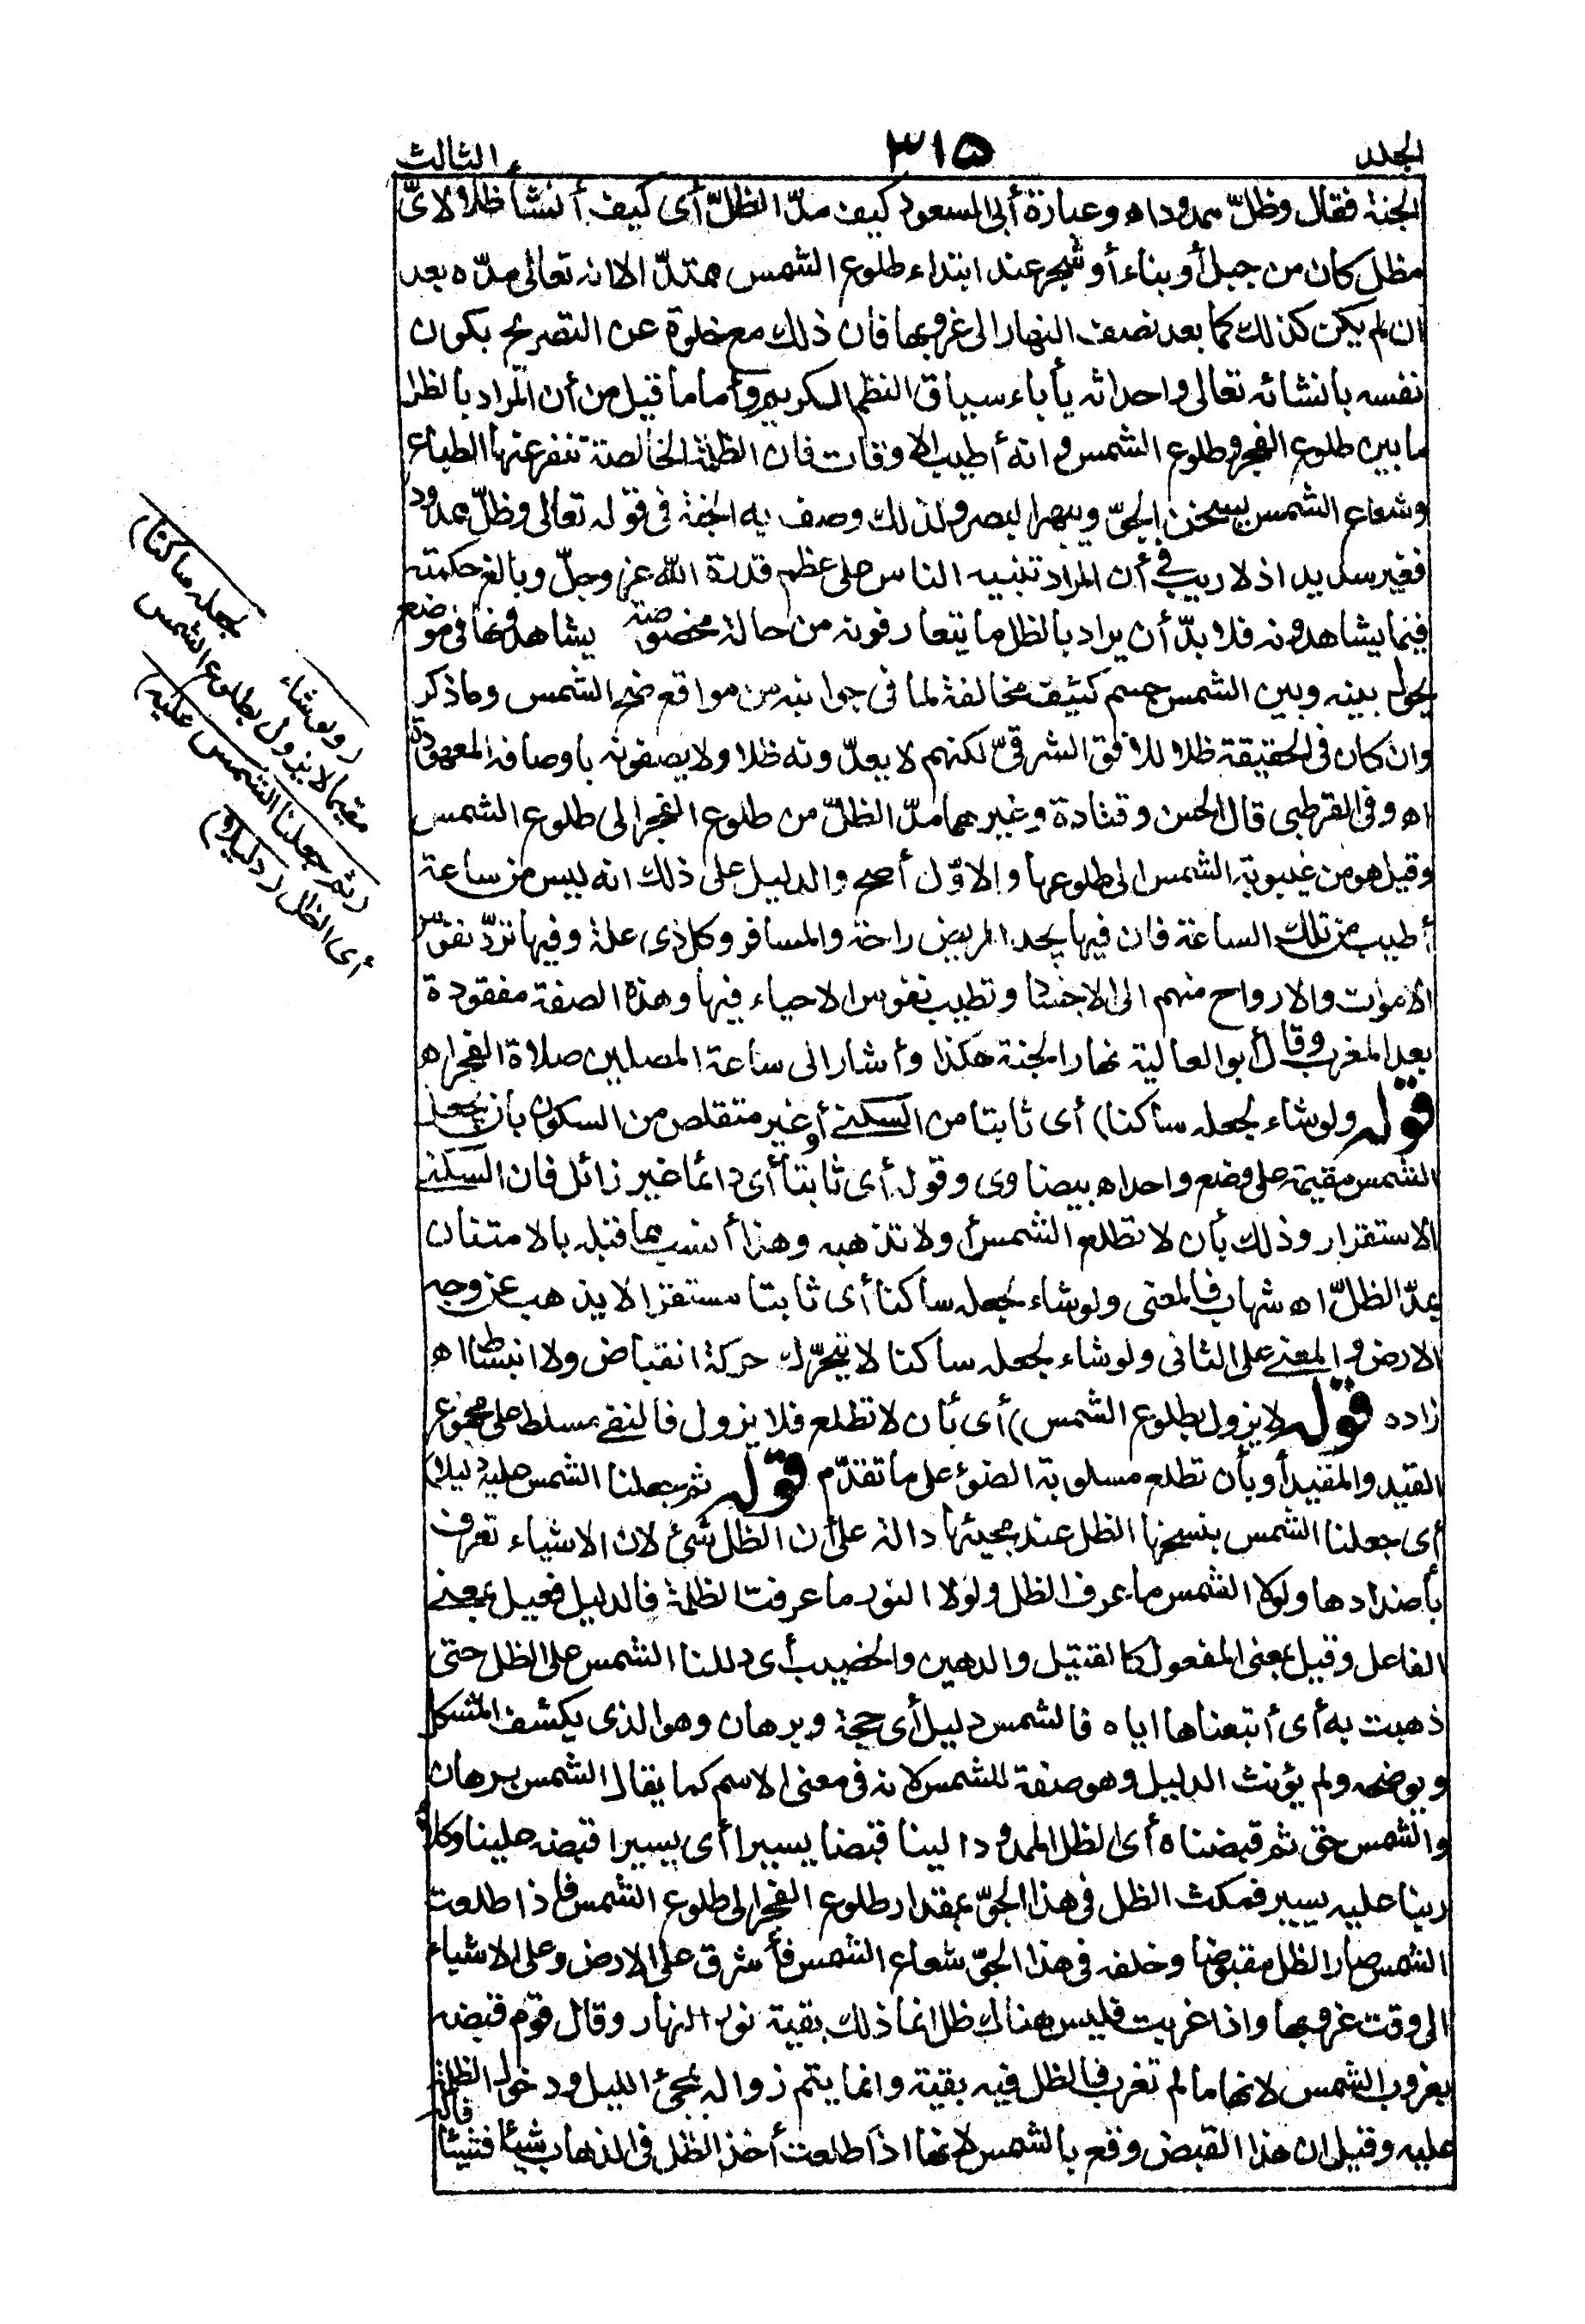 الجلد ٣١٥ الثالث
الجنة فقال وظلّ ممدود اه وعبارة أبى السعود كيف مدّ الظلّ أى كيف أنشأ ظلا لاىّ
مظل كان من جبل أو بناء أو شجر عند ابتداء طلوع الشمس ممتدّ الا انه تعالى مدّه بعد
ان لم يكن كذلك كما بعد نصف النهار الى غروبها فان ذلك مع خلوة عن التصريح بكون
نفسه بانشائه تعالى واحداثه يأباه سياق النظم الكريم وأما ما قيل من أن المراد بالظل
ما بين طلوع الفجر وطلوع الشمس وانه أطيب الاوقات فان الظلمة الخالصة تنفر عنها الطباع
وشعاع الشمس يسخن الجوّ ويبهر البصر ولذلك وصف به الجنة فى قوله تعالى وظلّ ممدود
فغير سديد اذ لا ريب فى أن المراد تنبيه الناس على عظم قدرة الله عز وجلّ وبالغ حكمته
فيما يشاهدونه فلا بدّ أن يراد بالظل ما يتعارفونه من حالة مخصوصة يشاهدونها فى موضع
يحول بينه وبين الشمس جسم كثيف مخالفة لما فى جوانبه من مواقع ضح الشمس وما ذكر
وان كان فى الحقيقة ظلا للافق الشرقىّ لكنهم لا يعدّونه ظلا ولا يصفونه باوصافه المعهودة
اه وفى القرطبى قال الحسن وقتادة وغيرهما مدّ الظلّ من طلوع الفجر الى طلوع الشمس
وقيل هو من غيبوبة الشمس الى طلوعها والاوّل أصح والدليل على ذلك انه ليس من ساعة
أطيب من تلك الساعة فان فيها يجد المريض راحة والمسافر وكل ذى علة وفيها تردّ نفوس
الاموات والارواح منهم الى الاجساد وتطيب نفوس الاحياء فيها وهذه الصفة مفقودة
بعد المغرب وقال أبو العالية نهار الجنة هكذا وأشار الى ساعة المصلين صلاة الفجر اه
قوله ولو شاء لجعله ساكنا) أى ثابتا من السكنى أو غير متقلص من السكون بان يجعل
الشمس مقيمة على وضع واحد اه بيضاوى وقوله أى ثابتا أى دائما غير زائل فان السكنى
الاستقرار وذلك بأن لا تطلع الشمس أو لا تذهبه وهذا أنسب بما قبله بالامتنان
بمدّ الظلّ اه شهاب فالمعنى ولو شاء لجعله ساكنا أى ثابتا مستقرا لا يذهب عن وجه
الارض والمعنى على الثانى ولو شاء لجعله ساكنا لا يتحرّك حركة انقباض ولا انبساط اه
زاده قوله لا يزول بطلوع الشمس) أى بأن لا تطلع فلا يزول فالنفى مسلط على مجموع
القيد والمقيد أو بأن تطلع مسلوبة الضوئ على ما تقدّم قوله ثم جعلنا الشمس عليه دليلا)
أى جعلنا الشمس بنسخها الظل عند مجيئها دالة على أن الظل شئ لان الاشياء تعرف
بأضدادها ولولا الشمس ما عرف الظل ولولا النور ما عرفت الظلمة فالدليل فعيل بمعنى
الفاعل وقيل بمعنى المفعول كالقتيل والدهين والخضيب أى دللنا الشمس على الظل حتى
ذهبت به أى أتبعناها اياه فالشمس دليل أى حجة وبرهان وهو الذى يكشف المشكل
ويوضحه ولم يؤنث الدليل وهو صفة للشمس لانه فى معنى الاسم كما يقال الشمس برهان
والشمس حق ثم قبضناه أى الظل الممدود الينا قبضا يسيرا أى يسيرا قبضه علينا وكل أمر
ربنا عليه يسير فمكث الظل فى هذا الجوّ بمقدار طلوع الفجر الى طلوع الشمس فاذا طلعت
الشمس صار الظل مقبوضا وخلفه فى هذا الجوّ شعاع الشمس فأشرق على الارض وعلى الاشياء
الى وقت غروبها واذا غربت فليس هناك ظل انما ذلك بقية نور النهار وقال قوم قبضه
بغروب الشمس لانها ما لم تغرب فالظل فيه بقية وانما يتم زواله بمجئ الليل ودخول الظلمة
عليه وقيل ان هذا القبض وقع بالشمس لانها اذا طلعت أخذ الظل فى الذهاب شيئا فشيئا قاله
(ولو شاء لجعله ساكنا)
مقيما لا يزول بطلوع الشمس
(ثم جعلنا الشمس عليه)
أى الظل (دليلا)